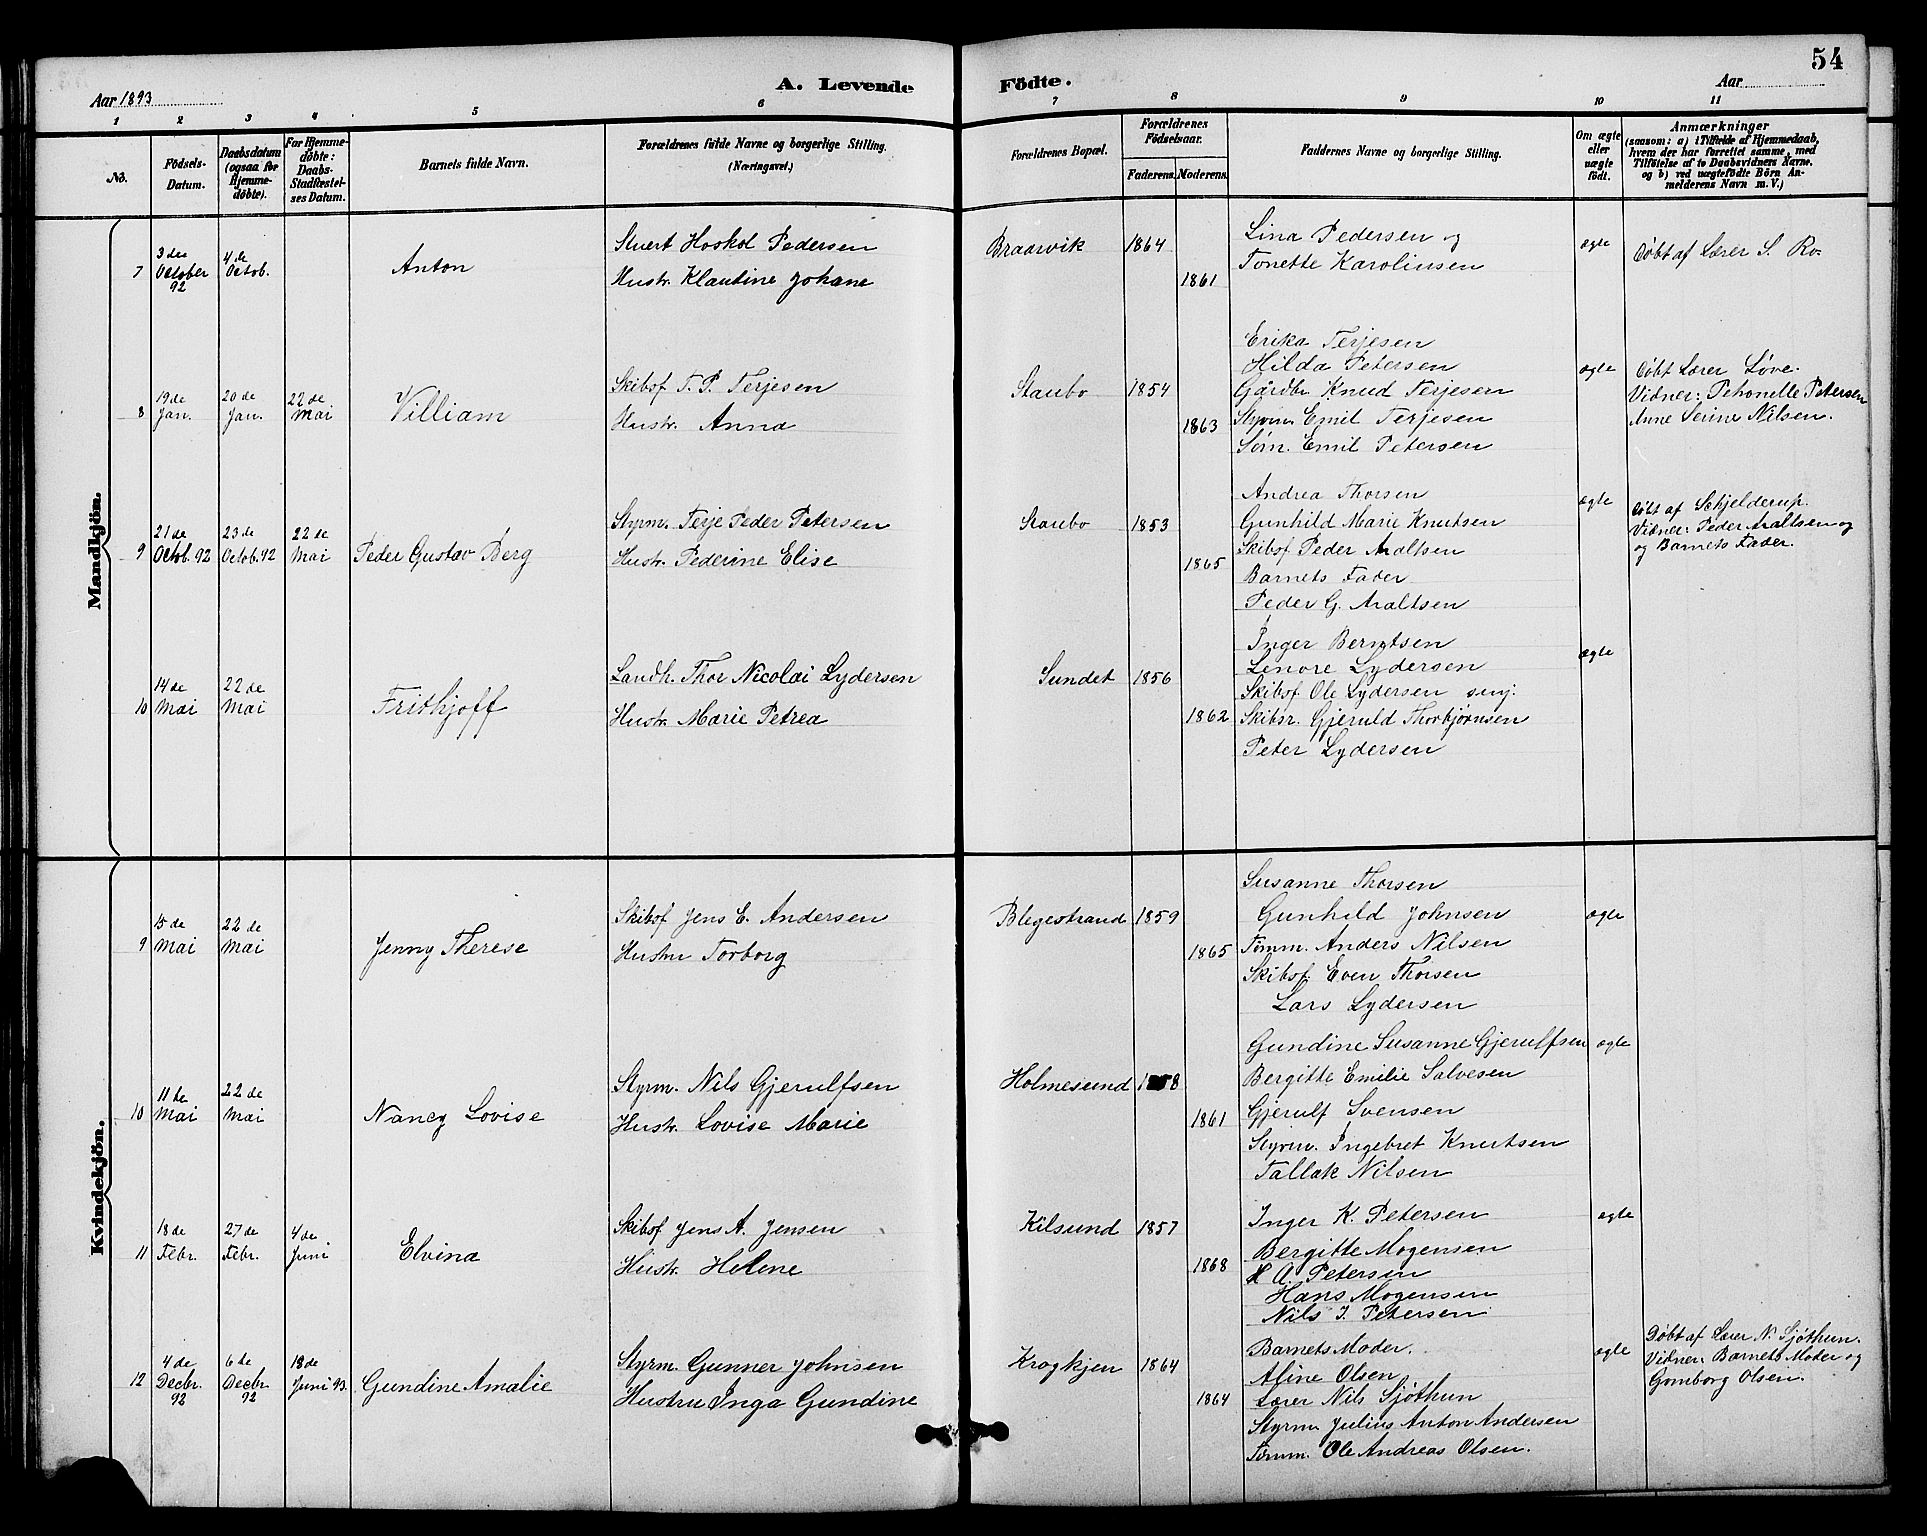 54
A. Levende Födte.
Aar 1893
Aar
1 2 3 4 5 6 7 8 9 10 11
No.
Födsels-Datum.
Daabsdatum (ogsaa for Hjemmedöbte).
For Hjemmedöbte: Daabs-Stadfæstelses Datum.
Barnets fulde Navn.
Forældrenes fulde Navne og borgerlige Stilling. (Næringsvei.)
Forældrenes Bopæl.
Forældrenes Födselsaar.
Faderens. Moderens.
Faddernes Navne og borgerlige Stilling.
Om ægte eller uægte födt.
Anmærkninger
(saasom: a) i Tilfælde af Hjemmedaab, hvem der har forrettet samme, med Tilföielse af to Daabsvidners Navne. og b) ved uægtefödte Börn Anmelderens Navn m. V.)
Mandkjön.
7
3 die October 92
4 de Octob.
Anton
Stuert Hoskol Pedersen
Hustr. Klautine Johane
Braarvik
1864
1861
Lina Pedersen og
Tonette Karolinsen
ægte
Döbt af Lærer S. Ro.
8
19 de Jan.
20 de Jan.
22 de Mai
Villiam
Skibsf T. P. Terjesen
Hustr. Anna
Staubo
1854
1863
Erika Terjesen
Hilda Petersen
Gårdbr. Knud Terjesen
Styrm. Emil Terjesen
Sørn. Emil Petersen
ægte
Döbt Lærer Løve.
Vidner: Petronelle Petersen
Anne Serine Nilsen.
9
21 de Octob. 92
23 de Octob. 92
22 de Mai
Peder Gustav Berg
Styrm. Terje Peder Petersen
Hustr. Pederine Elise
Staubo
1853
1865
Andrea Thorsen
Gunhild Marie Knutsen
Skibsf Peder Araltsen
Barnets Fader
Peder G. Araltsen
ægte
Döbt af Schjelderup.
Vidner: Peder Araltsen og
og Barnets Fader.
10
14 de Mai
22 de Mai
Frithjoff
Landh. Thor Nicolai Lydersen
Hustr. Marie Petrea
Sundet
1856
1862
Inger Berntsen
Lenore Lydersen
Skibsf Ole Lydersen senj.
Skibsr. Gjeruld Thorbjørnsen
Peter Lydersen
ægte
Kvindekjön.
9
15 de Mai
22 de Mai
Jenny Therese
Skibsf Jens E. Andersen
Hustru Torborg
Blegestrand
1859
1865
Susanne Thorsen
Gunhild Johnsen
Tømm. Anders Nilsen
Skibsf. Even Thorsen
Lars Lydersen
ægte
10
11 te Mai
22 de Mai
Nancy Lovise
Styrm. Nils Gjerulfsen
Hustr. Lovise Marie
Holmesund
1858
1861
Gundine Susanne Gjerulfsen
Bergitte Emilie Salvesen
Gjerulf Svensen
Styrm. Ingebret Knutsen
Tallak Nilsen
ægte
11
18 de Febr.
27 de Febr.
4 de Juni
Elvina
Skibsf Jens A. Jensen
Hustr. Helene
Kilsund
1857
1868
Inger K. Petersen
Bergitte Mogensen
H A. Petersen
Hans Mogensen
Nils J. Petersen
ægte
12
4 de Decbr. 92
6 te Decbr. 92
18 de Juni 93.
Gundine Amalie
Styrm. Gunner Johnsen
Hustru Inga Gundine
Krogkjen
1864
1864
Barnets Moder.
Aline Olsen
Lærer Nils Sjöthun
Styrm. Julius Anton Andersen
Tømm. Ole Andreas Olsen.
ægte
Döbt af Lærer N. Sjöthun.
Vidner: Barnets Moder og
Gomborg Olsen.